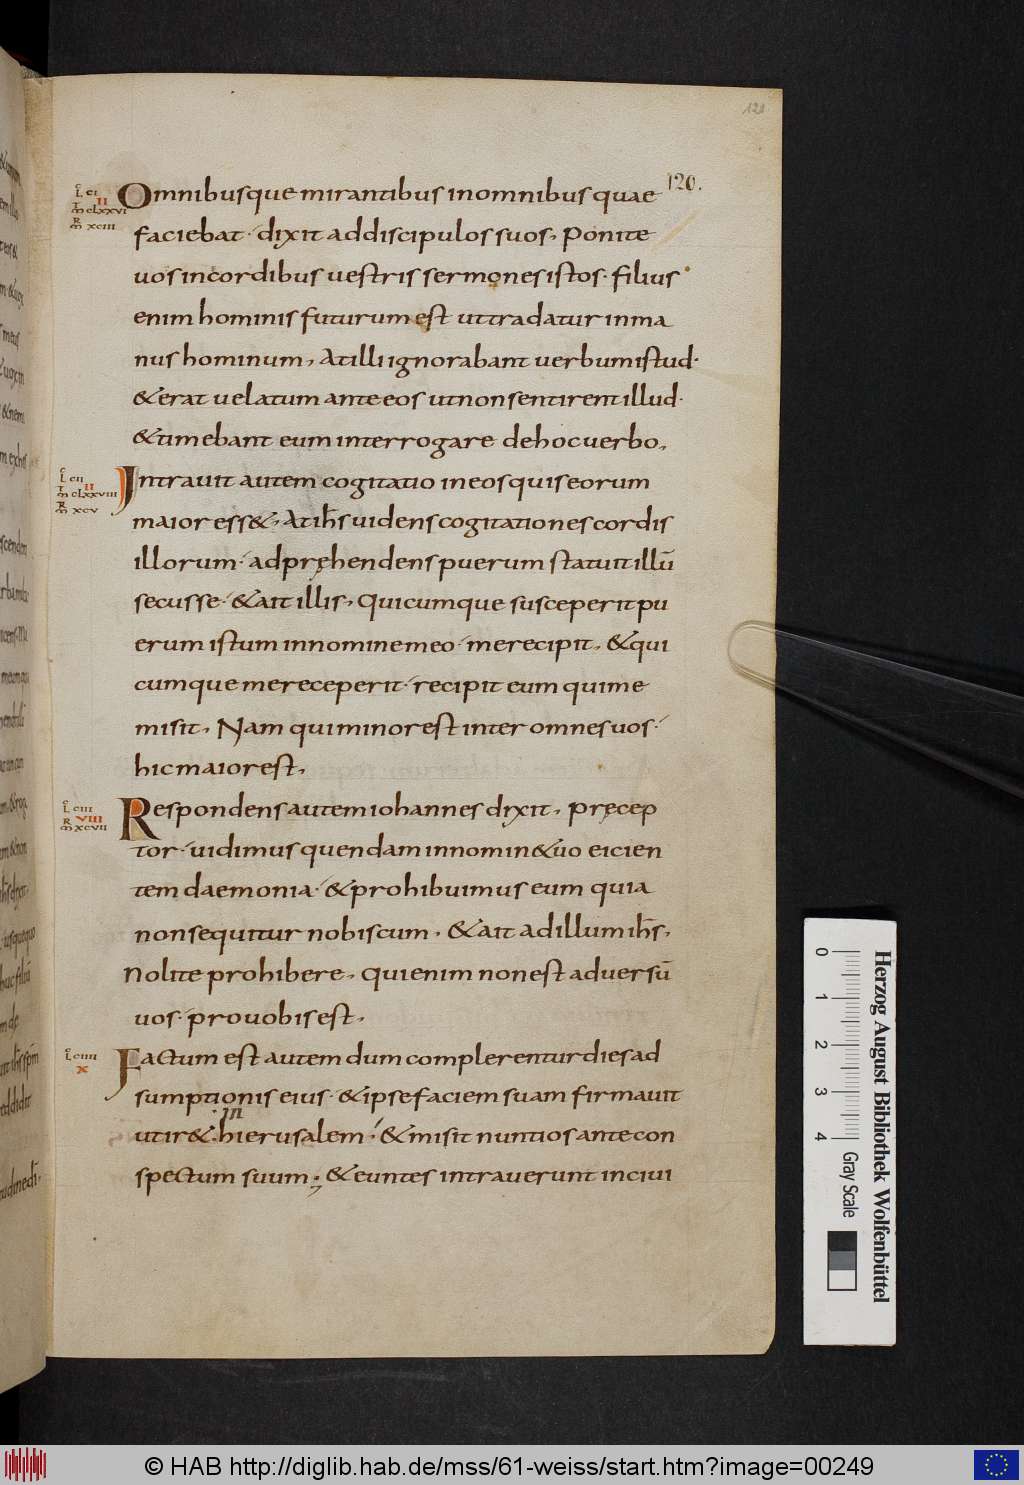 121
120.
L ci
II
M clxxvi
R
M xciii
Omnibusque mirantibus in omnibus quae
faciebat· dixit addiscipulos suos, Ponite
uos incordibus uestris sermones istos· filius
enim hominis futurum est uttradatur inma
nus hominum, Atilli ignorabant uerbum istud·
& erat uelatum ante eos utnonsentirent illud·
& timebant eum interrogare dehocuerbo,
L cii
II
M clxxviii
R
M xcv
Intrauit autem cogitatio ineos quis eorum
maior ess&, Atih̄s uidens cogitationes cordis
illorum· adpręhendens puerum statuit illū
secus se· & ait illis, Quicumque susceperit pu
erum istum innomine meo· merecipit, & qui
cumque mereceperit· recipit eum quime
misit, Nam quiminor est inter omnes uos·
hicmaiorest,
L ciii
VIII
R
M xcvii
Respondens autem iohannes dixit, Pręcep
tor· uidimus quendam innomin& uo eicien
tem daemonia· & prohibuimus eum quia
nonsequitur nobiscum, & ait adillum ih̄s,
Nolite prohibere, Qui enim nonest aduersū
uos· prouobis est,
L ciiii
X
Factum est autem dum complerentur dies ad
sumptionis eius· & ipse faciem suam firmauit
in
utir& hierusalem· & misit nuntios ante con
spectum suum; & euntes intrauerunt inciui
0 1 2 3 4
Gray Scale
Herzog August Bibliothek Wolfenbüttel
© HAB http://diglib.hab.de/mss/61-weiss/start.htm?image=00249